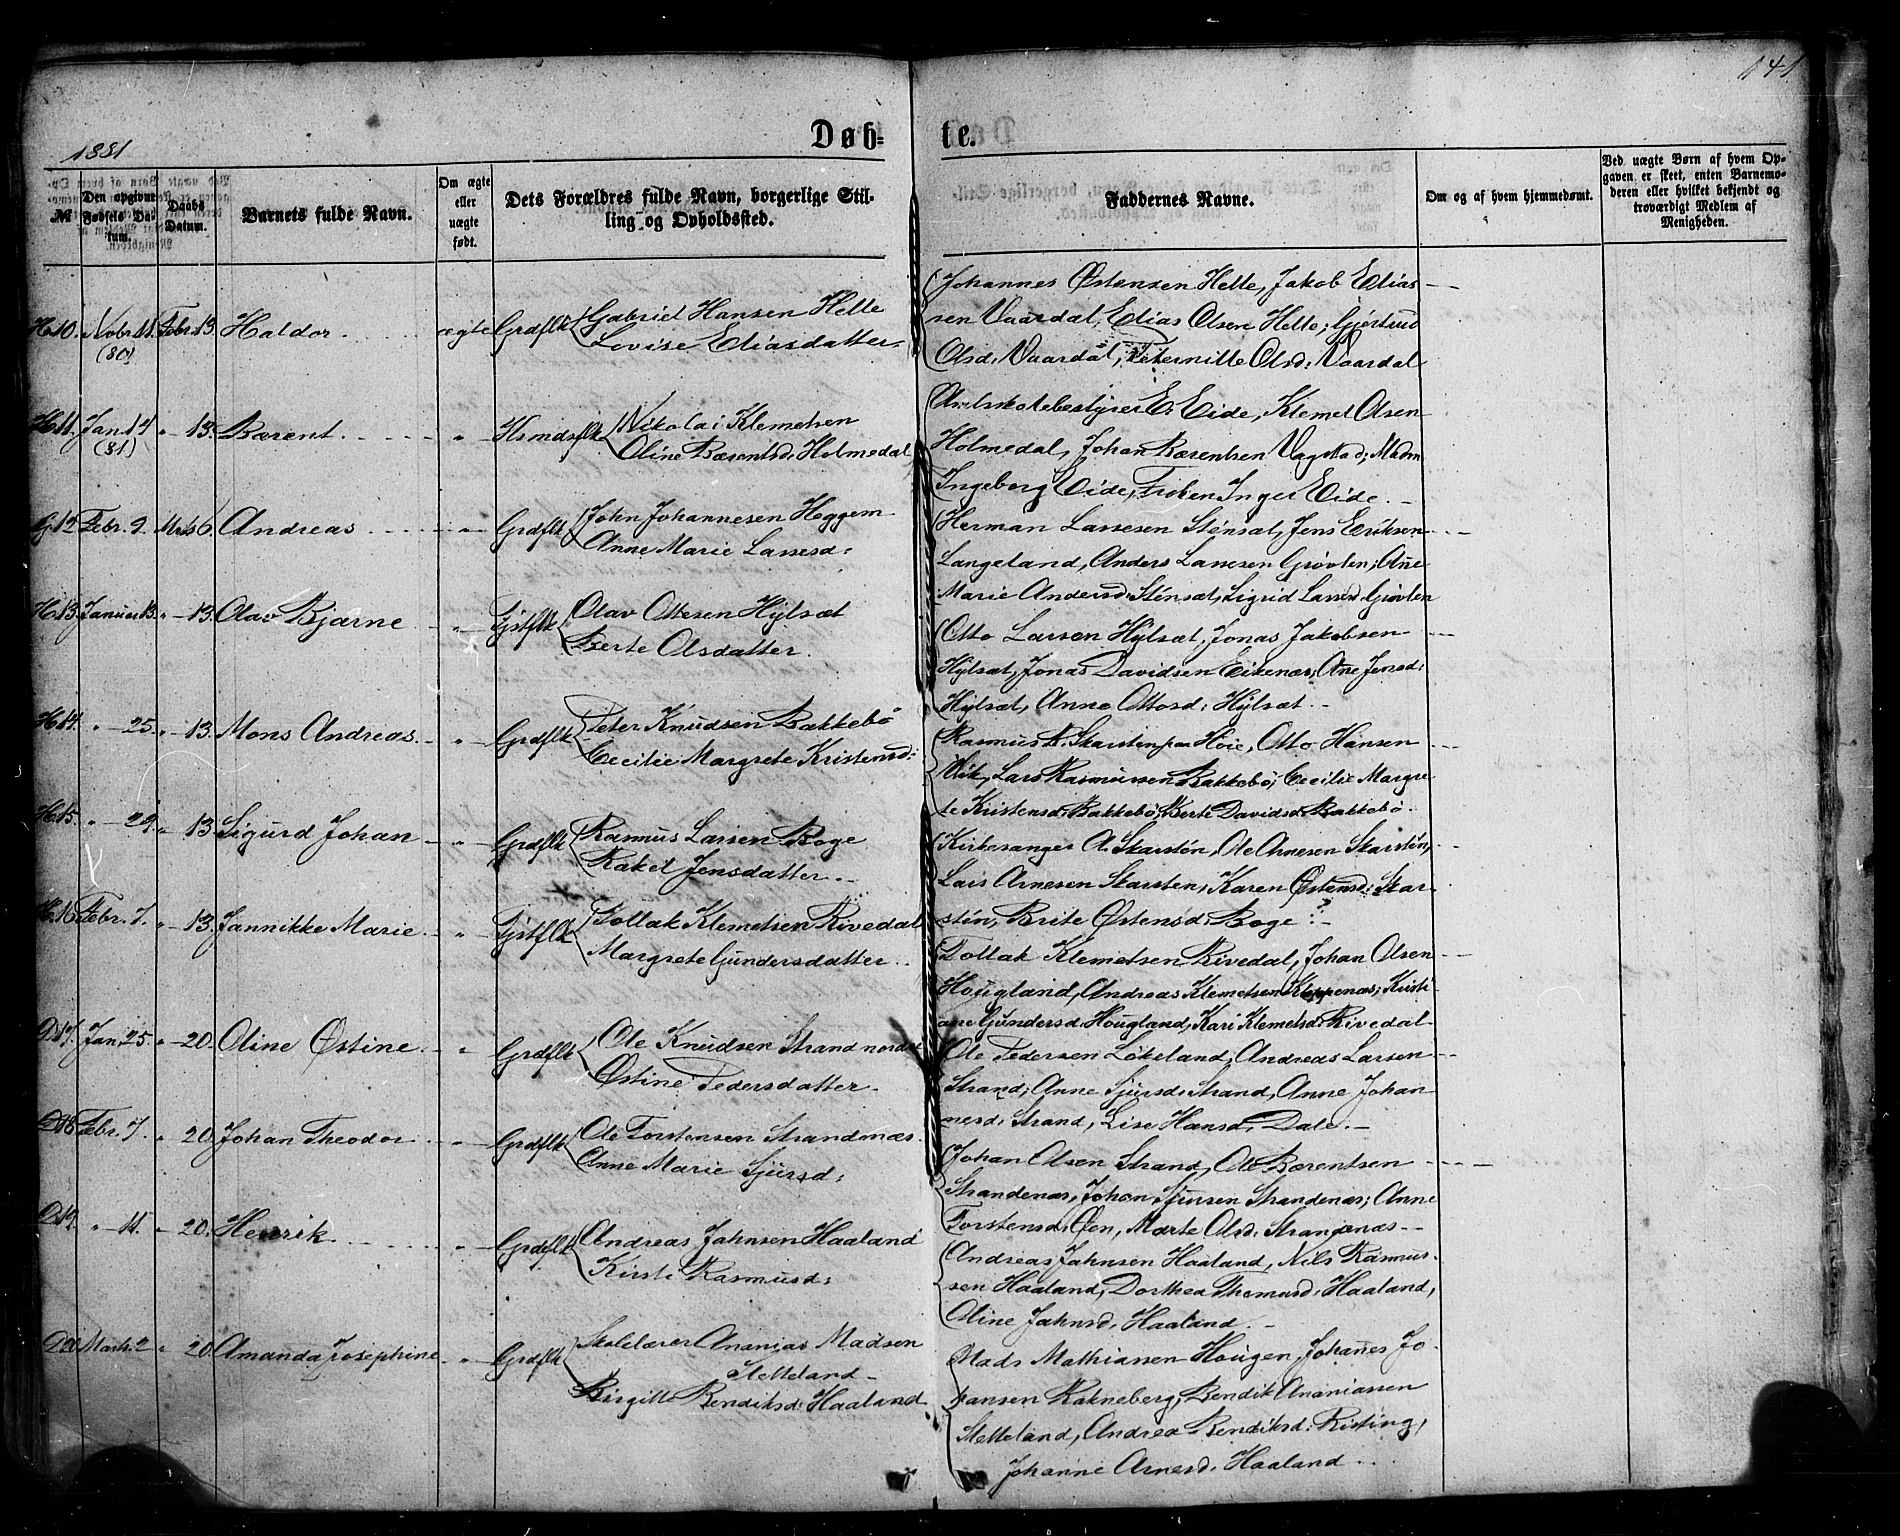 141
1881
Døb-
te.
№
Den opgivne Fødsels Datum.
Daabs Datum.
Barnets fulde Navn.
Om ægte eller uægte født.
Dets Forældres fulde Navn, borgerlige Stilling og Opholdssted.
Faddernes Navne.
Om og af hvem hjemmedøbt.
Ved uægte Børn af hvem Opgaven er skeet, enten Barnemoderen eller hvilket bekjendt og troværdigt Medlem af Menigheden.
H10. Nobr. 11. Febr. 13. Haldor. ægte Grdflk Gabriel Hansen Helle
(80) Lovise Eliasdatter
Johannes Østensen Helle, Jakob Elias-
sen Vaardal, Elias Olsen Helle; Gjørtrud
Olsd: Vaardal, Peternille Olsd: Vaardal
H11. Jan. 14 " 13. Bærent. " Hsmdsflk Nikolai Klemetsen
(81) Oline Bærentsd: Holmedal
Amtsskolebestyrer E. Eide, Klemet Olsen
Holmedal, Johan Bærentsen Vagstad; Madm
Ingeborg Eide, Frøken Inger Eide.
G12 Febr. 9. Mrts 6. Andreas " Grdflk John Johannesen Heggem
Anne Marie Lassesd:
Herman Lassesen Stensæt, Jens Eriksen
Langeland, Anders Lassesen Grøvlen; Ane
Marie Andersd: Stensæt, Sigrid Lassesd: Grøvlen
H13. Januar 13. " 13. Olav Bjarne " Tjstflk Olav Ottesen Hylsæt
Berte Olsdatter.
Otto Larsen Hylsæt, Jonas Jakobsen
Hylsæt, Jonas Davidsen Eikenæs; Ane Jensd:
Hylsæt, Anne Ottosd: Hylsæt.
H14. " 25. " 13. Mons Andreas. " Grdflk Peter Knudsen Bakkebø
Cecilie Margrete Kristensd:
Rasmus R. Skarsten paa Høie, Otto Hansen
Vik, Lars Rasmussen Bakkebø; Cecilie Margre-
te Kristensd: Bakkebø, Berte Davidsd: Bakkebø.
H15. " 29. " 13. Sigurd Johan " Grdflk Rasmus Larsen Boge
Rakel Jensdatter.
Kirkesanger A. Skarstén, Ole Arnesen Skarstén,
Lars Arnesen Skarsten, Karen Østensd: Skar-
stén, Brite Østensd: Boge
H16 Febr. 7. " 13. Jannikke Marie. " Tjstflk Tollak Klemetsen Rivedal
Margrete Gundersdatter.
Tollak Klemetsen Rivedal, Johan Olsen
Hougland, Andreas Klemetsen Kleppenæs; Kristi-
ane Gundersd: Hougland, Kari Klemetsd: Rivedal
D17. Jan. 25. " 20. Oline Østine. " Grdflk Ole Knudsen Strand nordre
Østine Pedersdatter.
Ole Pedersen Løkeland, Andreas Larsen
Strand; Anne Sjursd: Strand, Anne Johan-
nesd: Strand, Lise Hansd: Dale.
D18 Febr. 7. " 20. Johan Theodor " Grdflk Ole Torstensen Strandenæs.
Anne Marie Sjursd:
Johan Olsen Strand, Ole Bærentsen
Strandenæs, Johan Sjursen Strandenæs; Anne
Torstensd: Øen, Marte Olsd: Strandenæs.
D19. " 11. " 20. Henrik. " Grdflk Andreas Jahnsen Haaland
Kirsti Rasmusd:
Andreas Jahnsen Haaland, Nils Rasmus-
sen Haaland, Dorthea Thomasd: Haaland,
Oline Jahnsd: Haaland.
D20 Marts 2 " 20. Amanda Josephine " Grdflk Skolelærer Ananias Madsen
Stetteland
Birgitte Bendiksd: Haaland
Mads Mathiassen Hougen, Johanes Jo-
hansen Rakneberg, Bendik Ananiassen
Stetteland, Andrea Bendiksd: Risting,
Johanne Arnesd: Haaland.